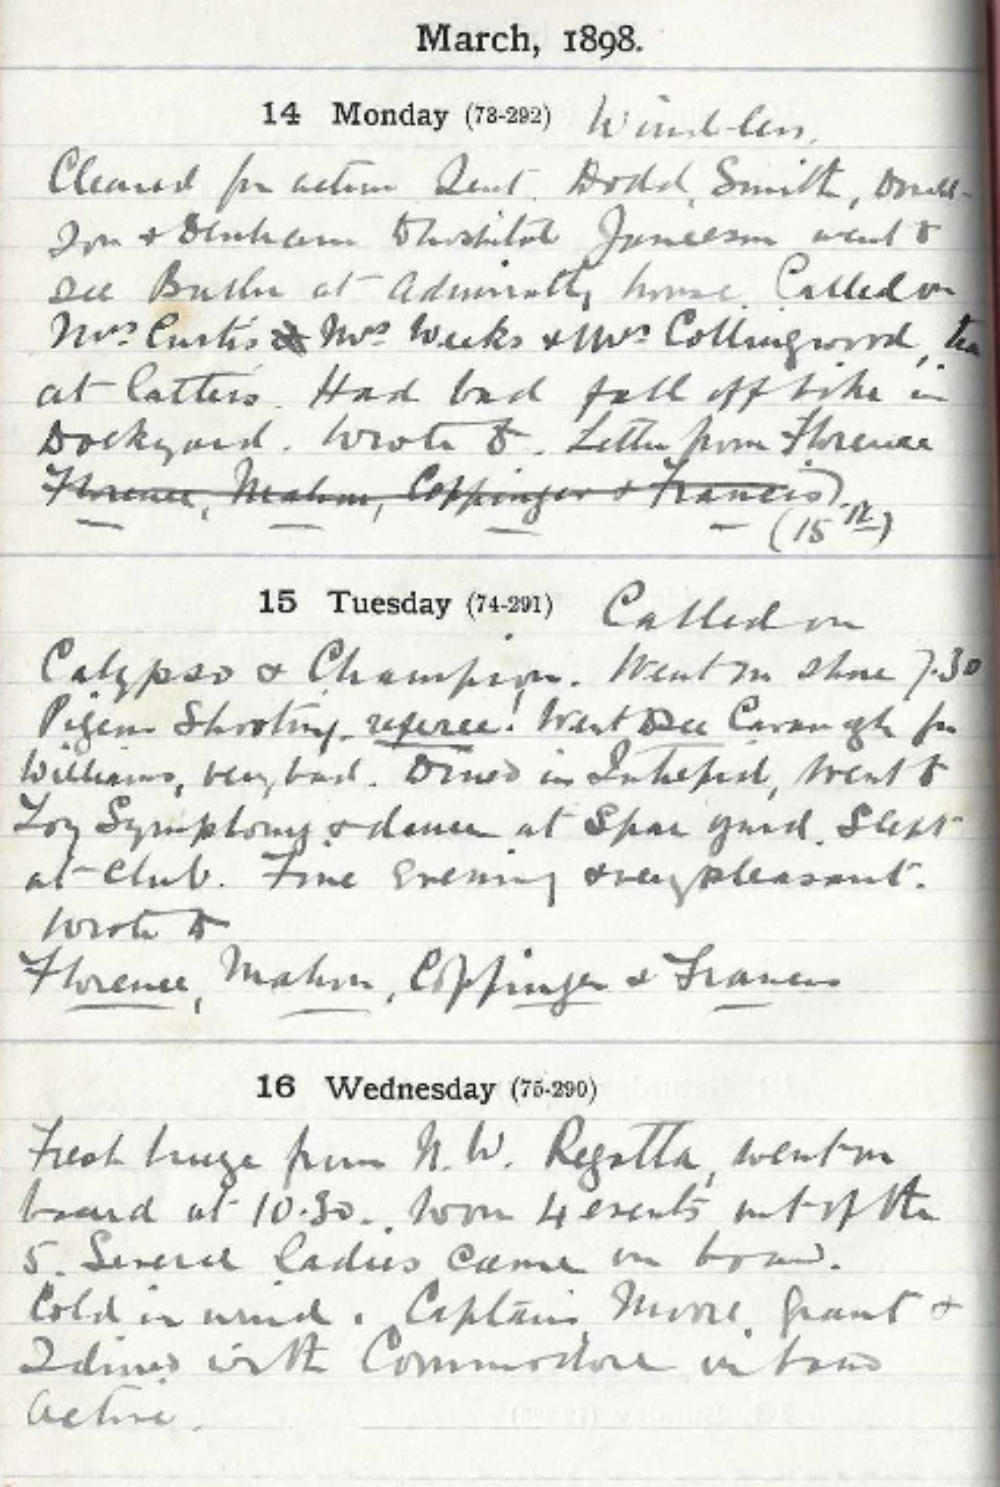 March, 1898.
14 Monday (73-292) Wind-less.
Cleared for action Sent Dodd, Smith, Donald-
son & Denham to hospital Jameson went to
see Butler at Admiralty house. Called on
Mrs. Curtis & Mrs Weeks & Mrs Collingwood, tea
at Catters. Had bad fall off bike in
Dockyard. Wrote to. Letter from Florence
Florence, Mahon, Coppinger & Francis)
(15th)
15 Tuesday (74-291) Called on
Calypso & Champion. Went on shore 7.30
Pigeon Shooting, referee! Went to see Cavanagh for
Williams, very bad. Dined in Intrepid, went to
Toy Symphony & dance at Spar yard. Slept
at Club. Fine evening & very pleasant.
Wrote to
Florence, Mahon, Coppinger & Francis
16 Wednesday (75-290)
Fresh breeze from N.W. Regatta, went on
board at 10.30. Won 4 events out of the
5. Several ladies came on board.
Cold in wind. Captains Moore, Grant &
I dined with Commodore on board
Active.